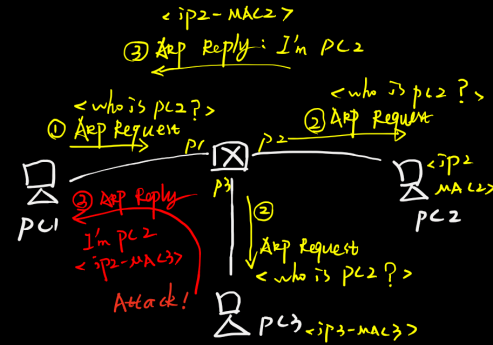 <ip2-MAC2>
③ ARP Reply: I'm PC2
<who is pc2?>
① ARP Request
<who is pc2?>
② ARP Request
p1
p2
p3
PC1
<ip2
MAC2>
PC2
③ ARP Reply
I'm PC2
<ip2-MAC3>
Attack!
②
ARP Request
<who is pc2?>
PC3
<ip3-MAC3>